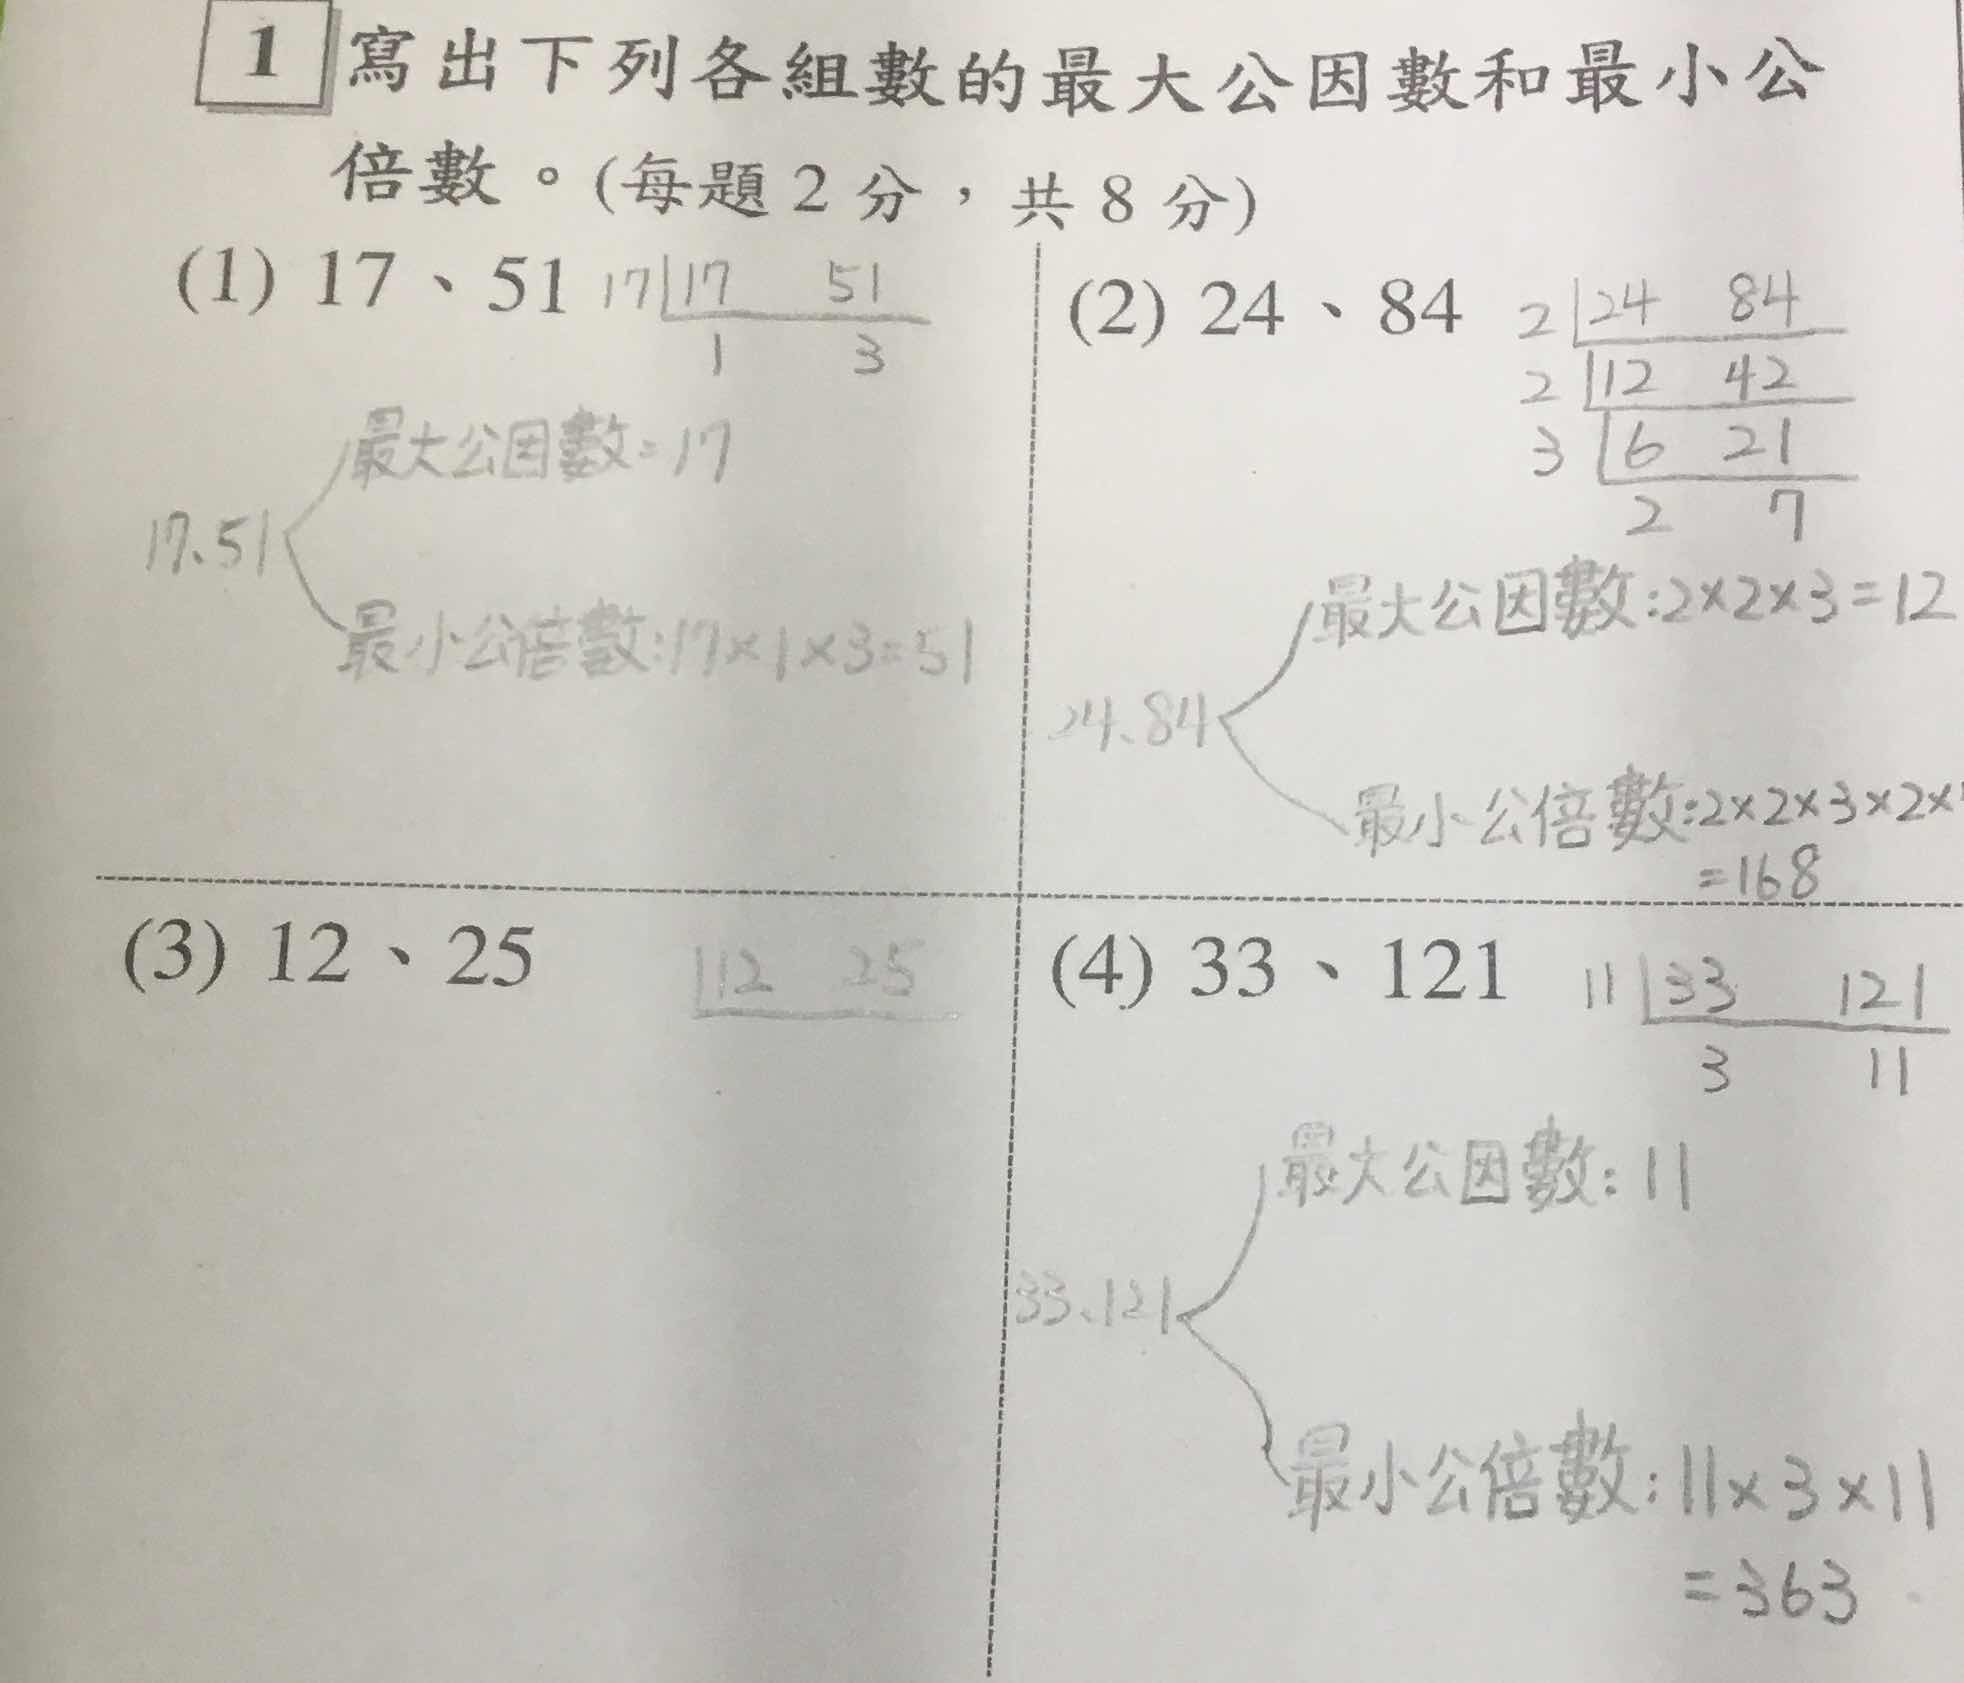 1 寫出下列各組數的最大公因數和最小公
倍數。(每題2分，共8分)
(1) 17、51
17 17 51
1 3
最大公因數=17
17、51
最小公倍數:17×1×3=51
(2) 24、84
2 24 84
2 12 42
3 6 21
2 7
最大公因數:2×2×3=12
24、84
最小公倍數:2×2×3×2×
=168
(3) 12、25
12 25
(4) 33、121
11 33 121
3 11
最大公因數:11
33、121
最小公倍數:11×3×11
=363